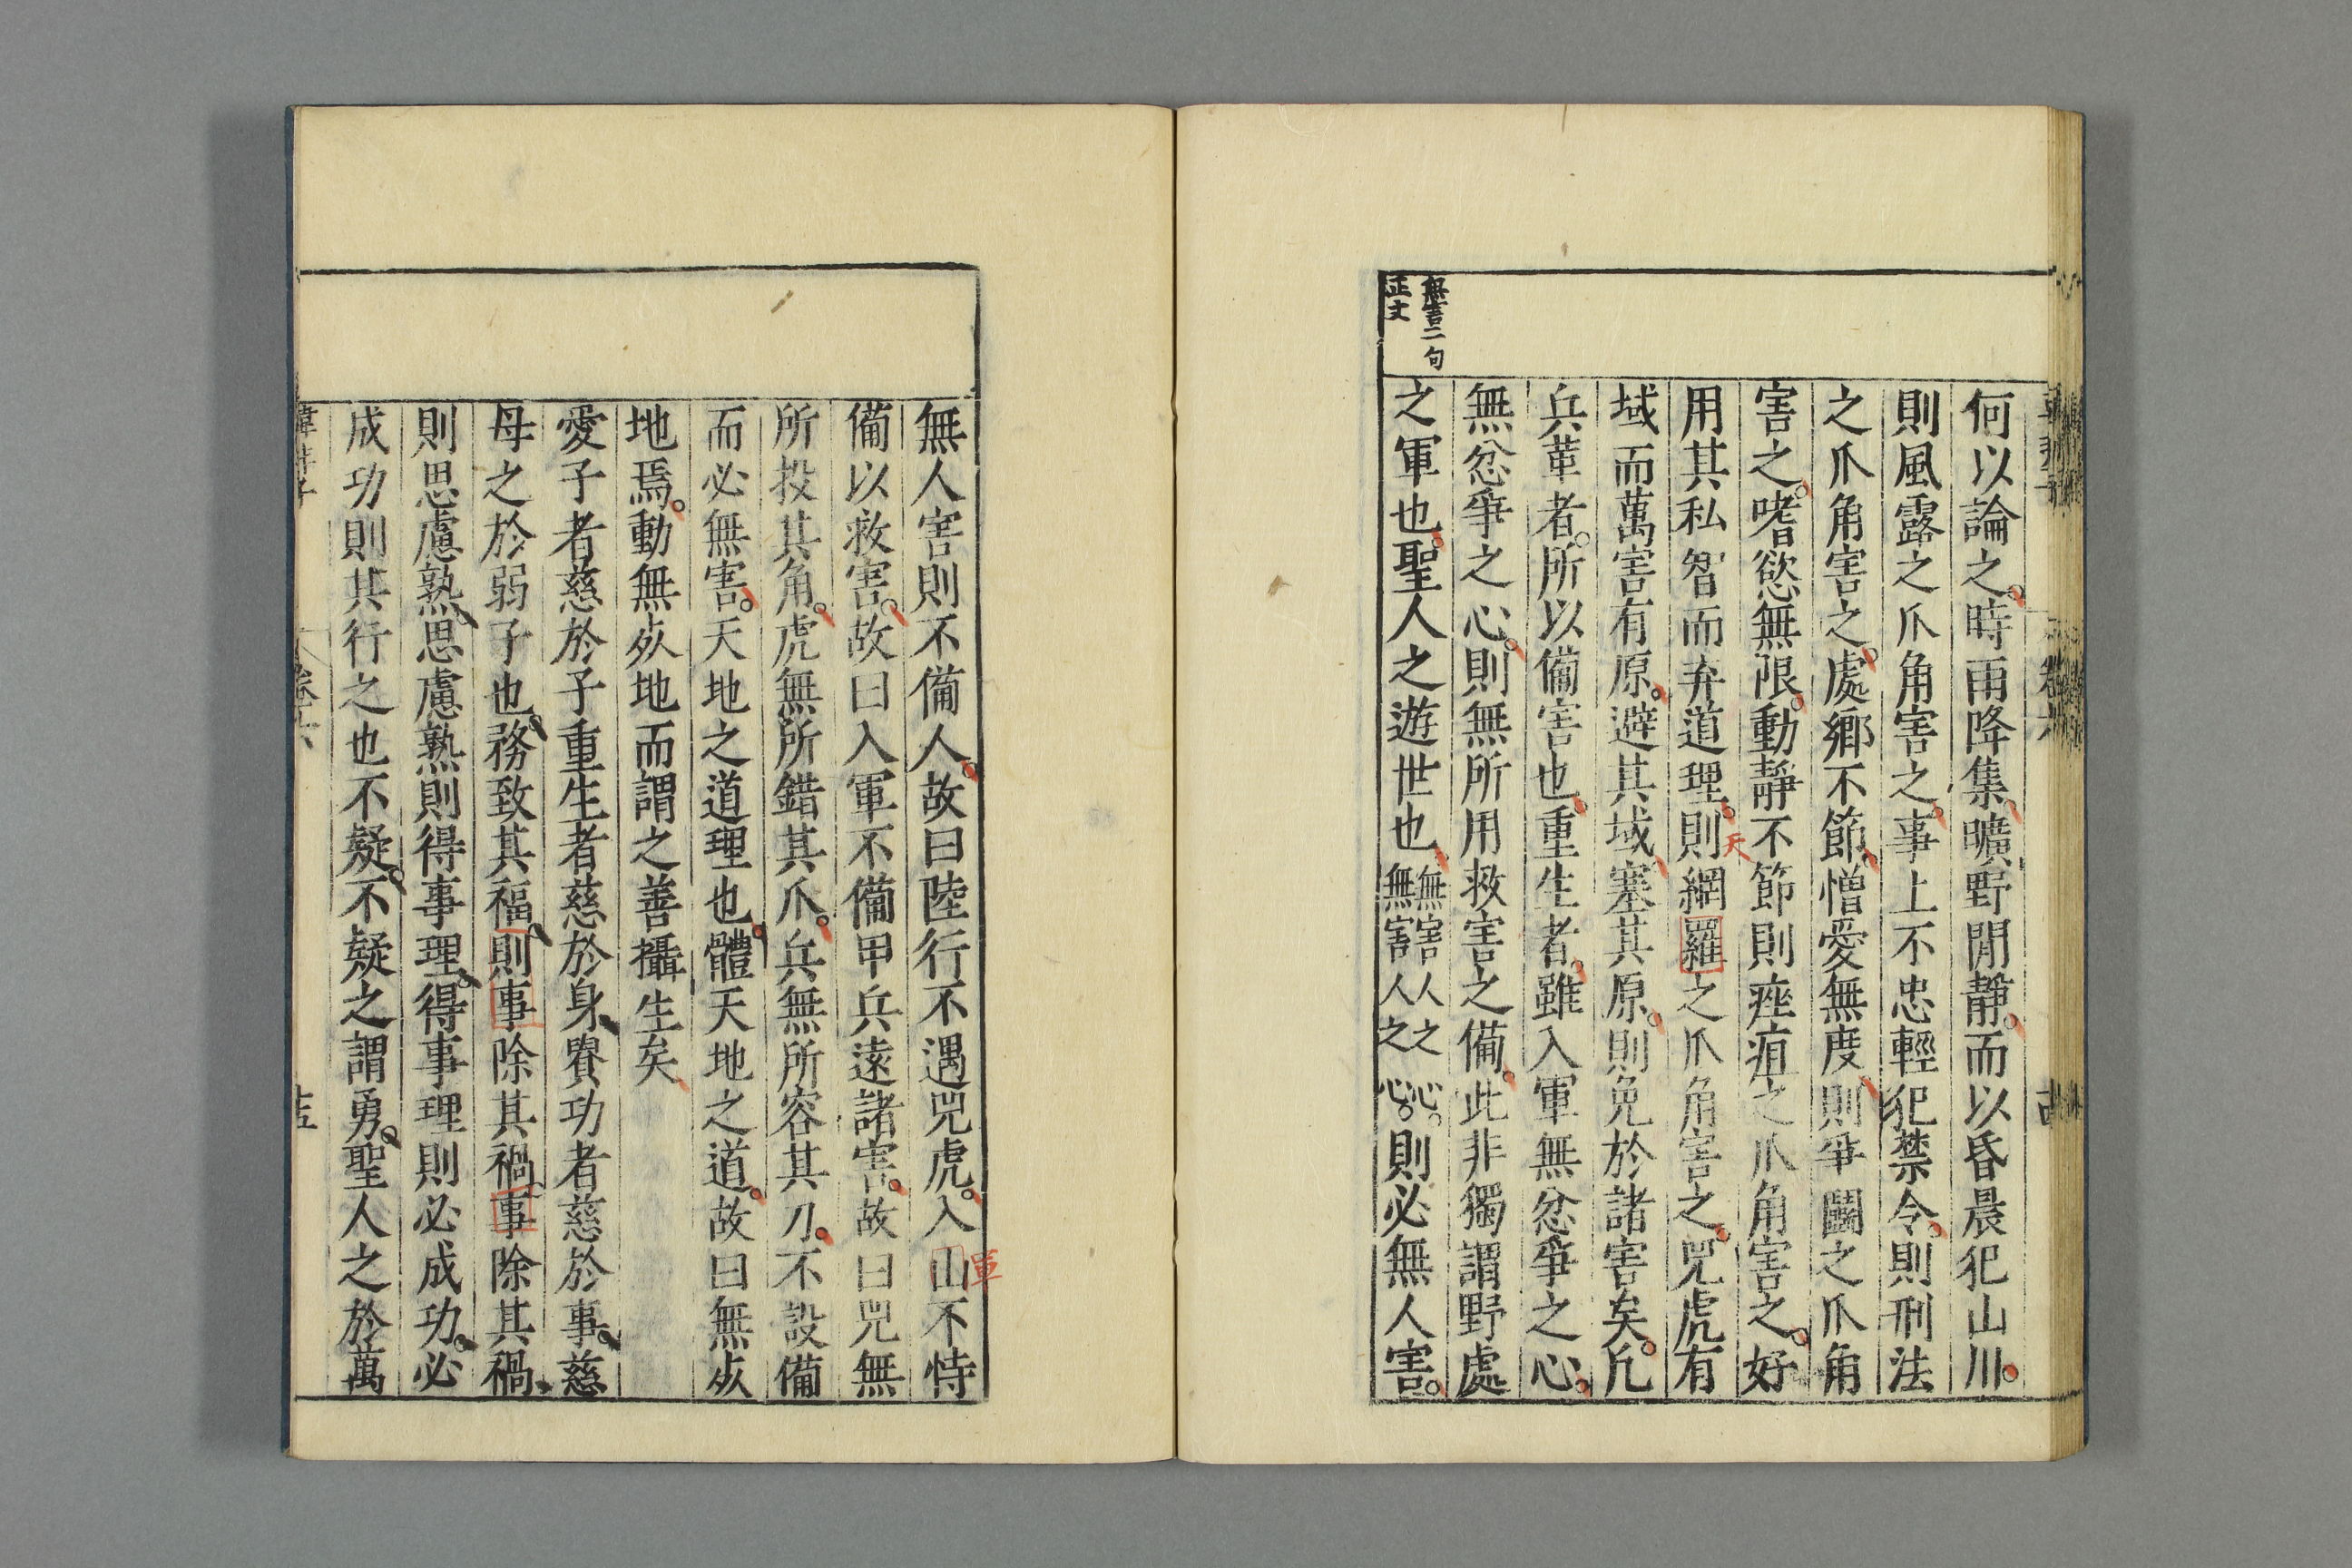 何以論之時雨降集曠野閒靜而以昏晨犯山川
則風露之爪角害之事上不忠輕犯禁令則刑法
之爪角害之處鄉不節憎愛無度則爭鬬之爪角
害之嗜慾無限動靜不節則痤疽之爪角害之好
用其私智而弃道理則網羅之爪角害之兕虎有
天
域而萬害有原避其域塞其原則免於諸害矣凡
兵革者所以備害也重生者雖入軍無忿爭之心
無忿爭之心則無所用救害之備此非獨謂野處
之軍也聖人之遊世也無害人之心無害人之心則必無人害
無害二句
正文
無人害則不備人故曰陸行不遇兕虎入山不恃
軍
備以救害故曰入軍不備甲兵遠諸害故曰兕無
所投其角虎無所錯其爪兵無所容其刀不設備
而必無害天地之道理也體天地之道故曰無㱕
地焉動無㱕地而謂之善攝生矣
愛子者慈於子重生者慈於身貴功者慈於事慈
母之於弱子也務致其福則事除其禍事除其禍
則思慮熟思慮熟則得事理得事理則必成功必
成功則其行之也不疑不疑之謂勇聖人之於萬
韓非子 卷六 十五